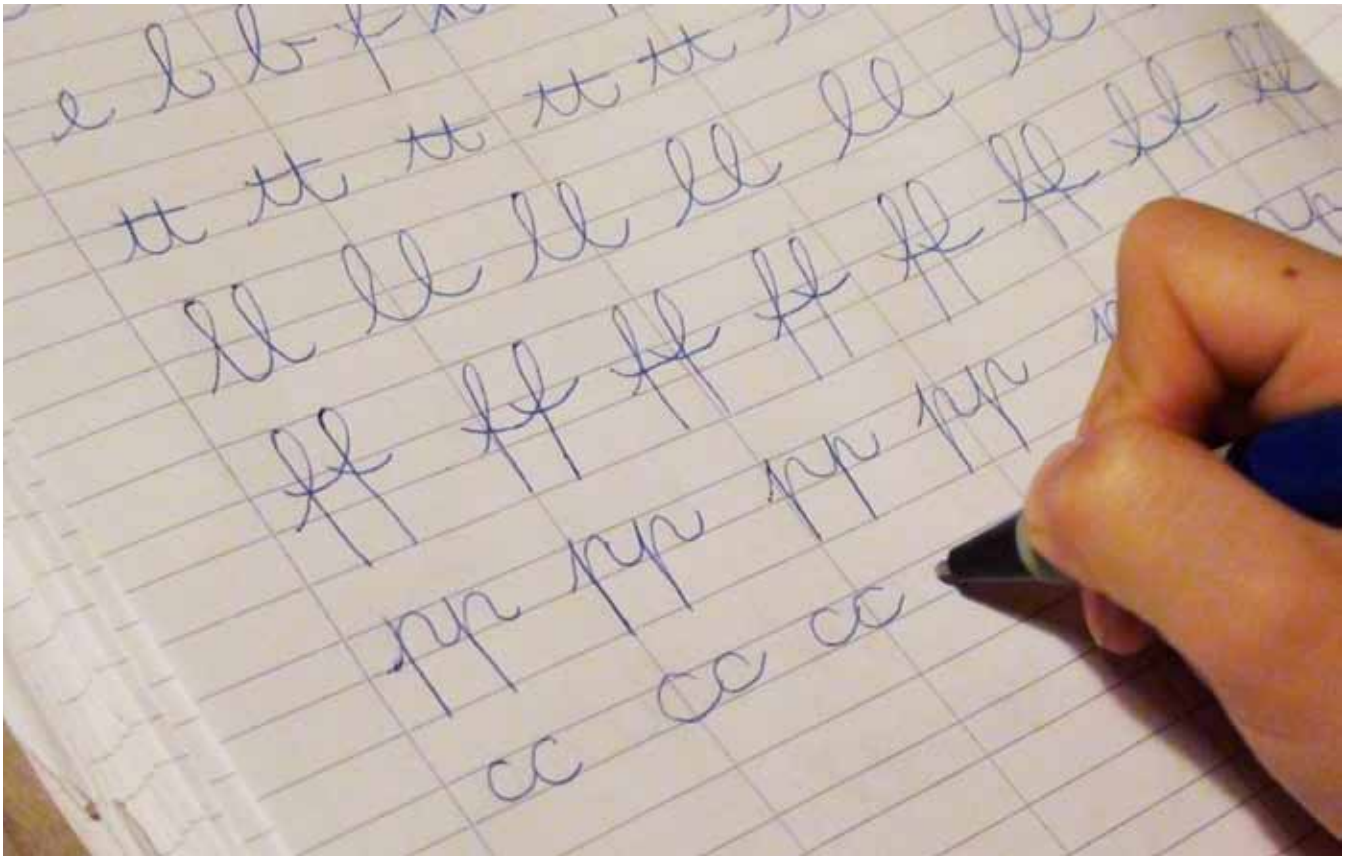 e b b f
tt tt tt tt tt
ll ll ll ll ll ll
ff ff ff ff ff ff ff ff
pp pp pp pp
cc cc cc